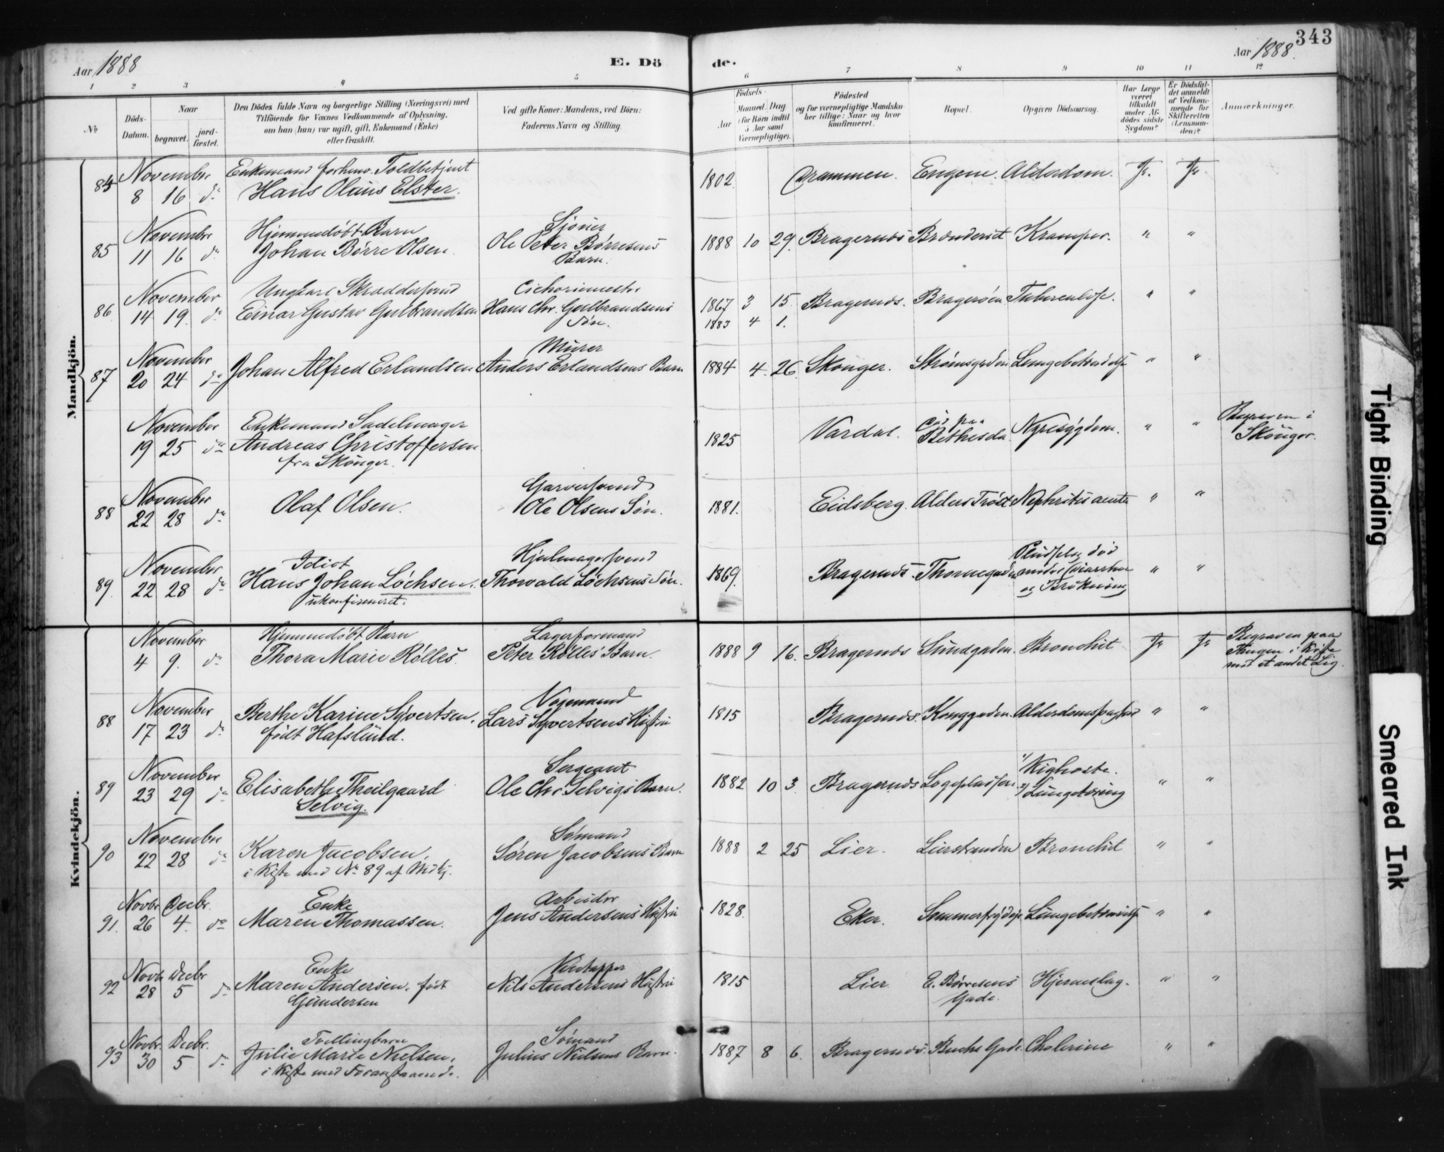 343
Aar 1888
E. Dö
de.
Aar 1888.
1 2 3 4 5 6 7 8 9 10 11 12
No
Döds-Datum.
Naar
begravet.
jord-fæstet.
Den Dödes fulde Navn og borgerlige Stilling (Næringsvei) med
Tilföiende for Voxnes Vedkommende af Oplysning,
om han (hun) var ugift, gift, Enkemand (Enke)
eller fraskilt.
Ved gifte Koner: Mandens, ved Börn:
Faderens Navn og Stilling.
Födsels-
Aar
Maaned. Dag
(for Börn indtil
5 Aar samt
Værnepligtige).
Födested
og for værnepligtige Mandskaber
tillige: Naar og hvor
konfirmeret.
Bopæl.
Opgiven Dödsaarsag.
Har Læge
været
tilkaldt
under Afdödes
sidste
Sygdom?
Er Dödsfaldet
anmeldt
af Vedkommende
for
Skifteretten
(Lensmanden)?
Anmærkninger.
Mandkjön.
84 November 8 16 do Enkemand forhenv. Toldbetjent
Hans Olaus Elster. 1802 Drammen. Engene. Alderdom. Ja. Ja
85 November 11 16 do Hjemmedöbt Barn
Johan Börre Olsen. Sjömd Ole Peter Börresens
Barn. 1888 10 29. Bragernæs Krampe. " "
86 November 14 19. do Ungkarl Skræddersvend
Einar Gustav Gulbrandsen Cichoriemester Hans Chr. Gulbrandsens
Sön. 1867 3 15 Bragernæs. Bragerøen " "
1883 4 1.
87 November 20 24 do Johan Alfred Erlandsen Murer
Anders Erlandsens Barn 1884 4. 26 Skouger. Strømsgaden Lungebetændelse " "
November 19 25 do Enkemand Sadelmager
Andreas Christoffersen
fra Skouger. 1825 Vardal. Bethesda. Nyresygdom. " " Begraven i
Skouger.
88 November 22 28 do Olaf Olsen. Garversvend
Ole Olsens Sön. 1881. Eidsberg. Nephritis acuta " "
89. November 22 28 do Idiot
Hans Johan Löchsen.
ukonfirmeret. Hjulmagersvend
Thorvald Löchsens Sön. 1869. Bragernæs. Thornegaden Pludselig död
under Diarrhoe
og Brækning " "
Kvindekjön.
November 4 9. do Hjemmedöbt Barn
Thora Marie Rölles. Lagerformand
Peter Rölles Barn. 1888 9 16. Bragernæs Strandgaden. Bronchit Ja Ja Begraven paa
i Kiste
med et andet Lig.
88 November 17 23 do Berthe Karine Syvertsen.
födt Hafslund. Vognmand
Lars Syvertsens Hustru 1815 Bragernæs. Konggaden. Alderdomssvaghed " "
89 November 23 29 do Elisabeth Theilgaard
Selvig. Sergeant
Ole Chr. Selvigs Barn. 1882 10 3. Bragernæs Logepladsen. 1) Kighoste.
2) Lungetæring " "
90 November 22 28 do Karen Jacobsen.
i Kiste med No 89 af Mdkj. Sömand
Sören Jacobsens Barn 1888 2 25 Lier. Lierstranden Bronchit " "
91. Novbr. 26 Decbr. 4. do Enke
Maren Thomassen. Arbeider
Jens Andersens Hustru 1828. Eker. Sommerfrydsg. Lungebetændelse " "
92 Novb. 28 Decbr 5 do Enke
Maren Andersen. födt
Gundersen Nils Andersens Hustru 1815 Lier E. Börresens
Gade. Hjerneslag. " "
93 Novbr. 30 Decbr. 5 do Tvillingbarn
Julie Marie Nielsen.
i Kiste med Foranstaaende. Sömand
Julius Nielsens Barn. 1887 8 6. Bragernæs. Buchs Gade. Cholerine " "
Tight Binding
Smeared Ink